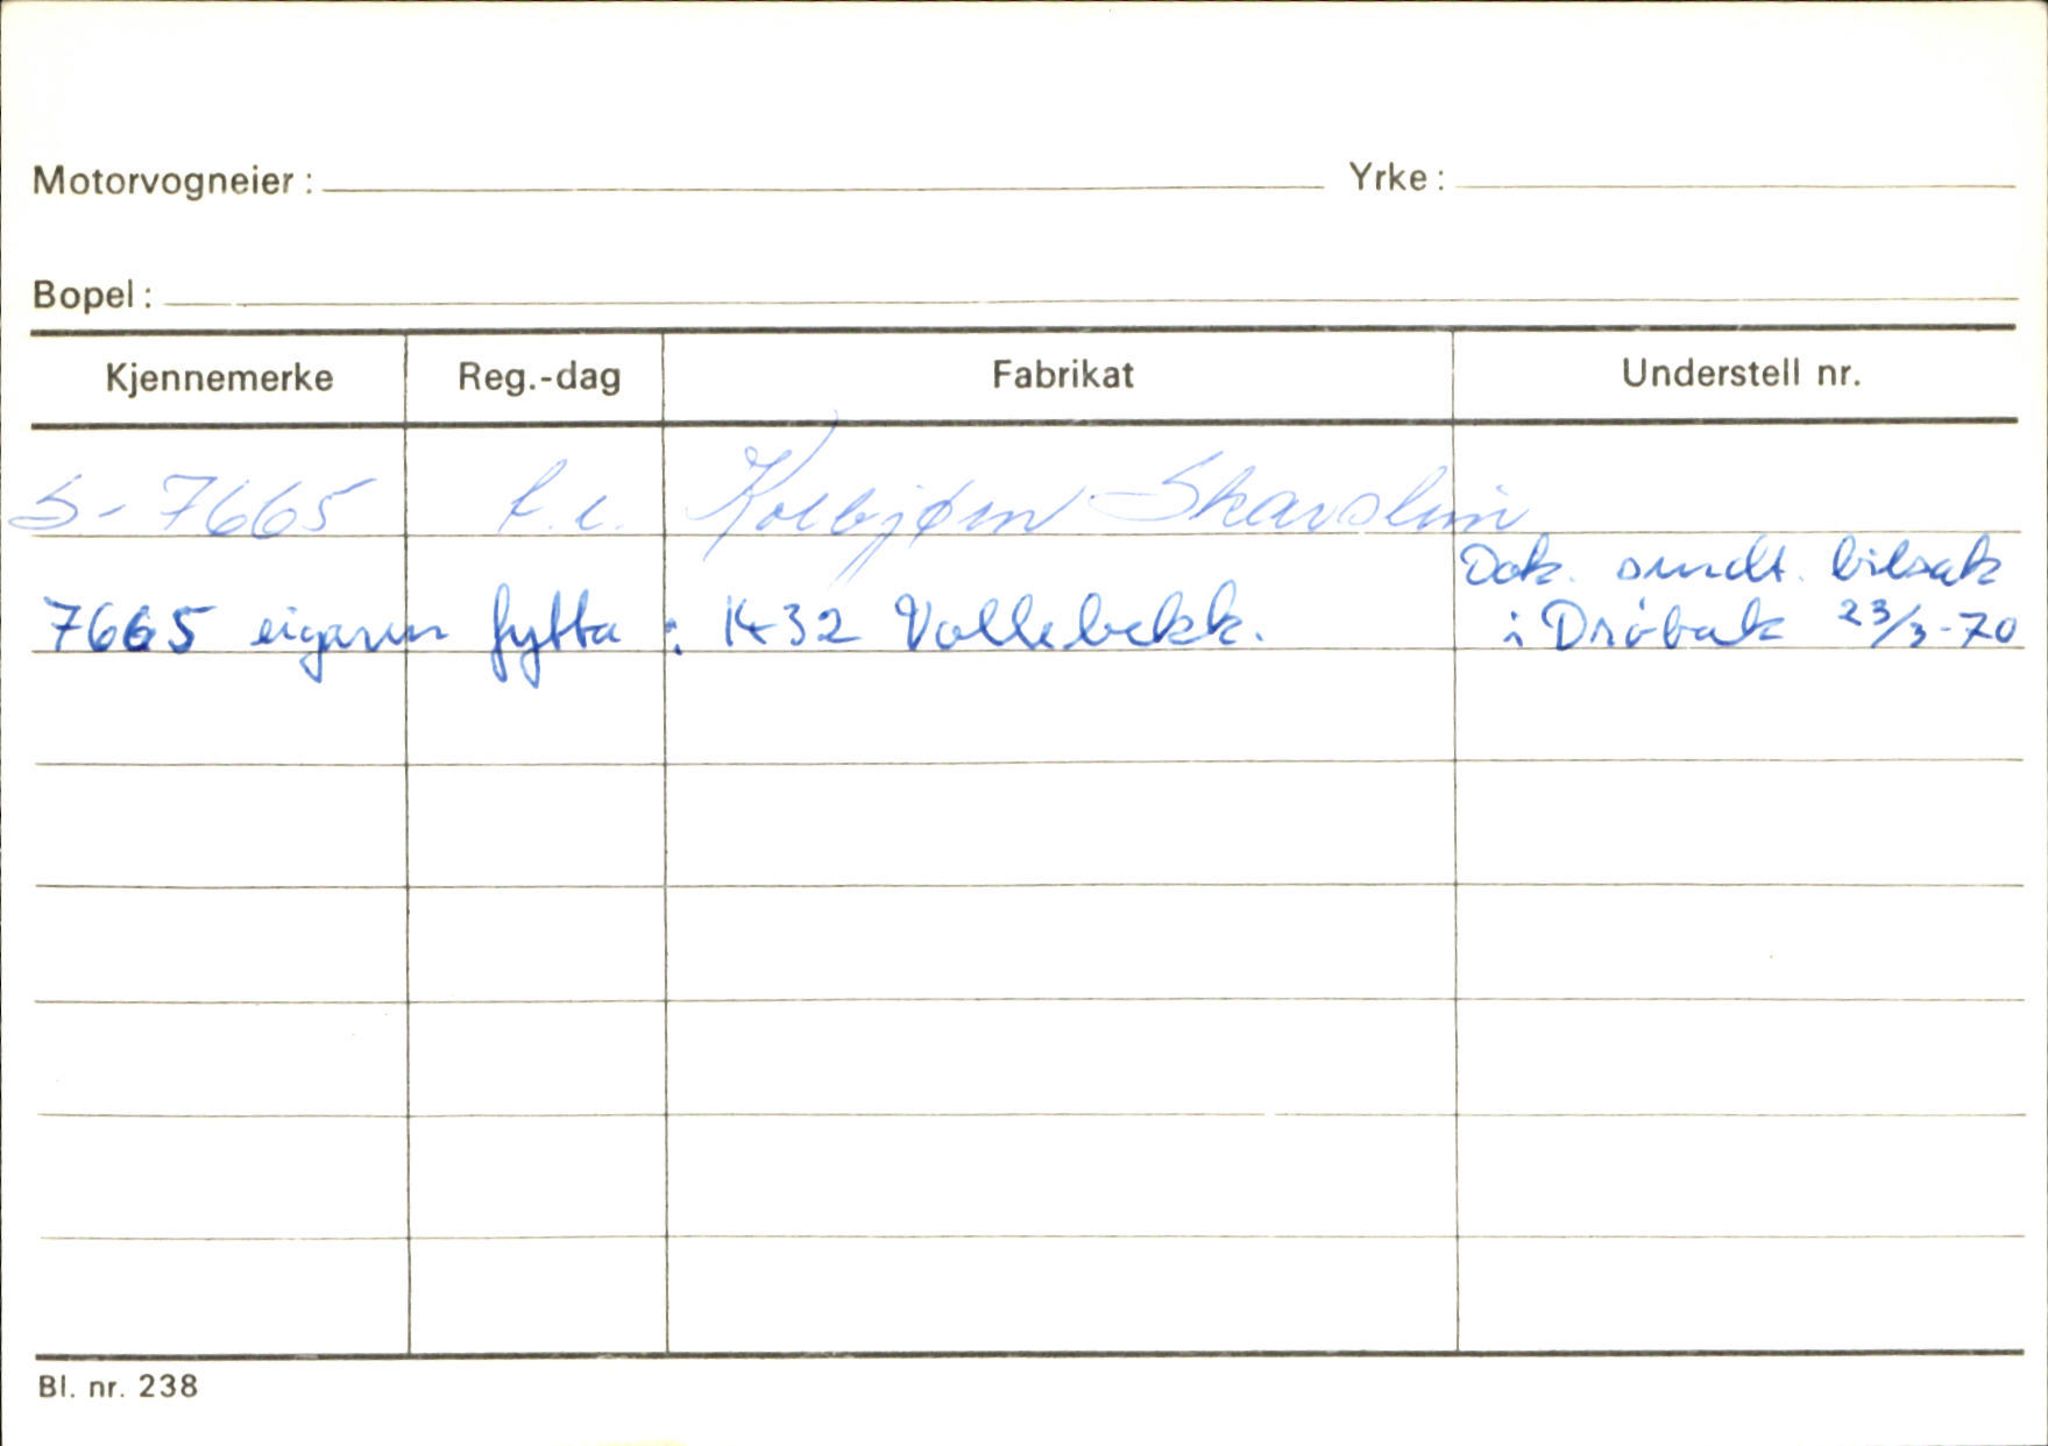 Motorvogneier: Yrke:
Bopel:
Kjennemerke Reg.-dag Fabrikat Understell nr.
S-7665 Kolbjørn
Dok. sendt. bilsak
7665 eigaren flytta : 1432 Vollebekk. i Drøbak 23/3-70
Bl. nr. 238